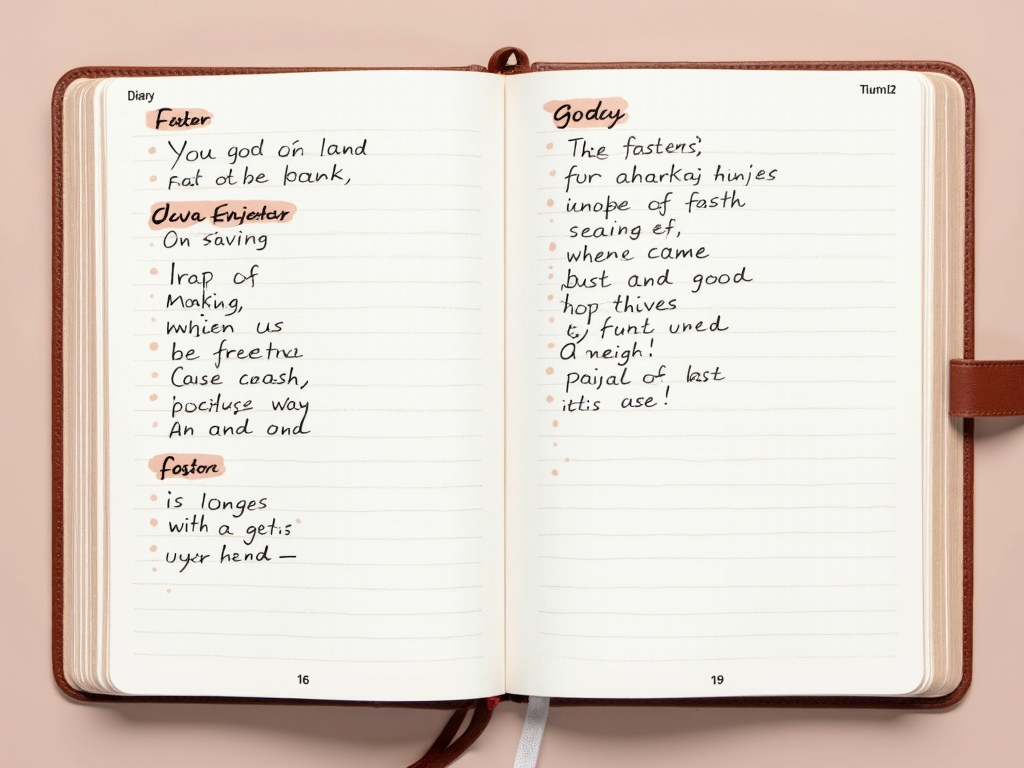 Diary
Fester
You god on land
Fat ot be bank,
On saving
Irap of
Morking,
whien us
be free
Case coash,
way
An and ond
Foston
is longes
with a getis
hend —
16
Godcy
The fastens,
fur aharkaj hunjes
unope of fasth
seaing ef,
whene came
bust and good
hop thives
t, funt uned
a neigh!
paijal of last
ittis ase!
19